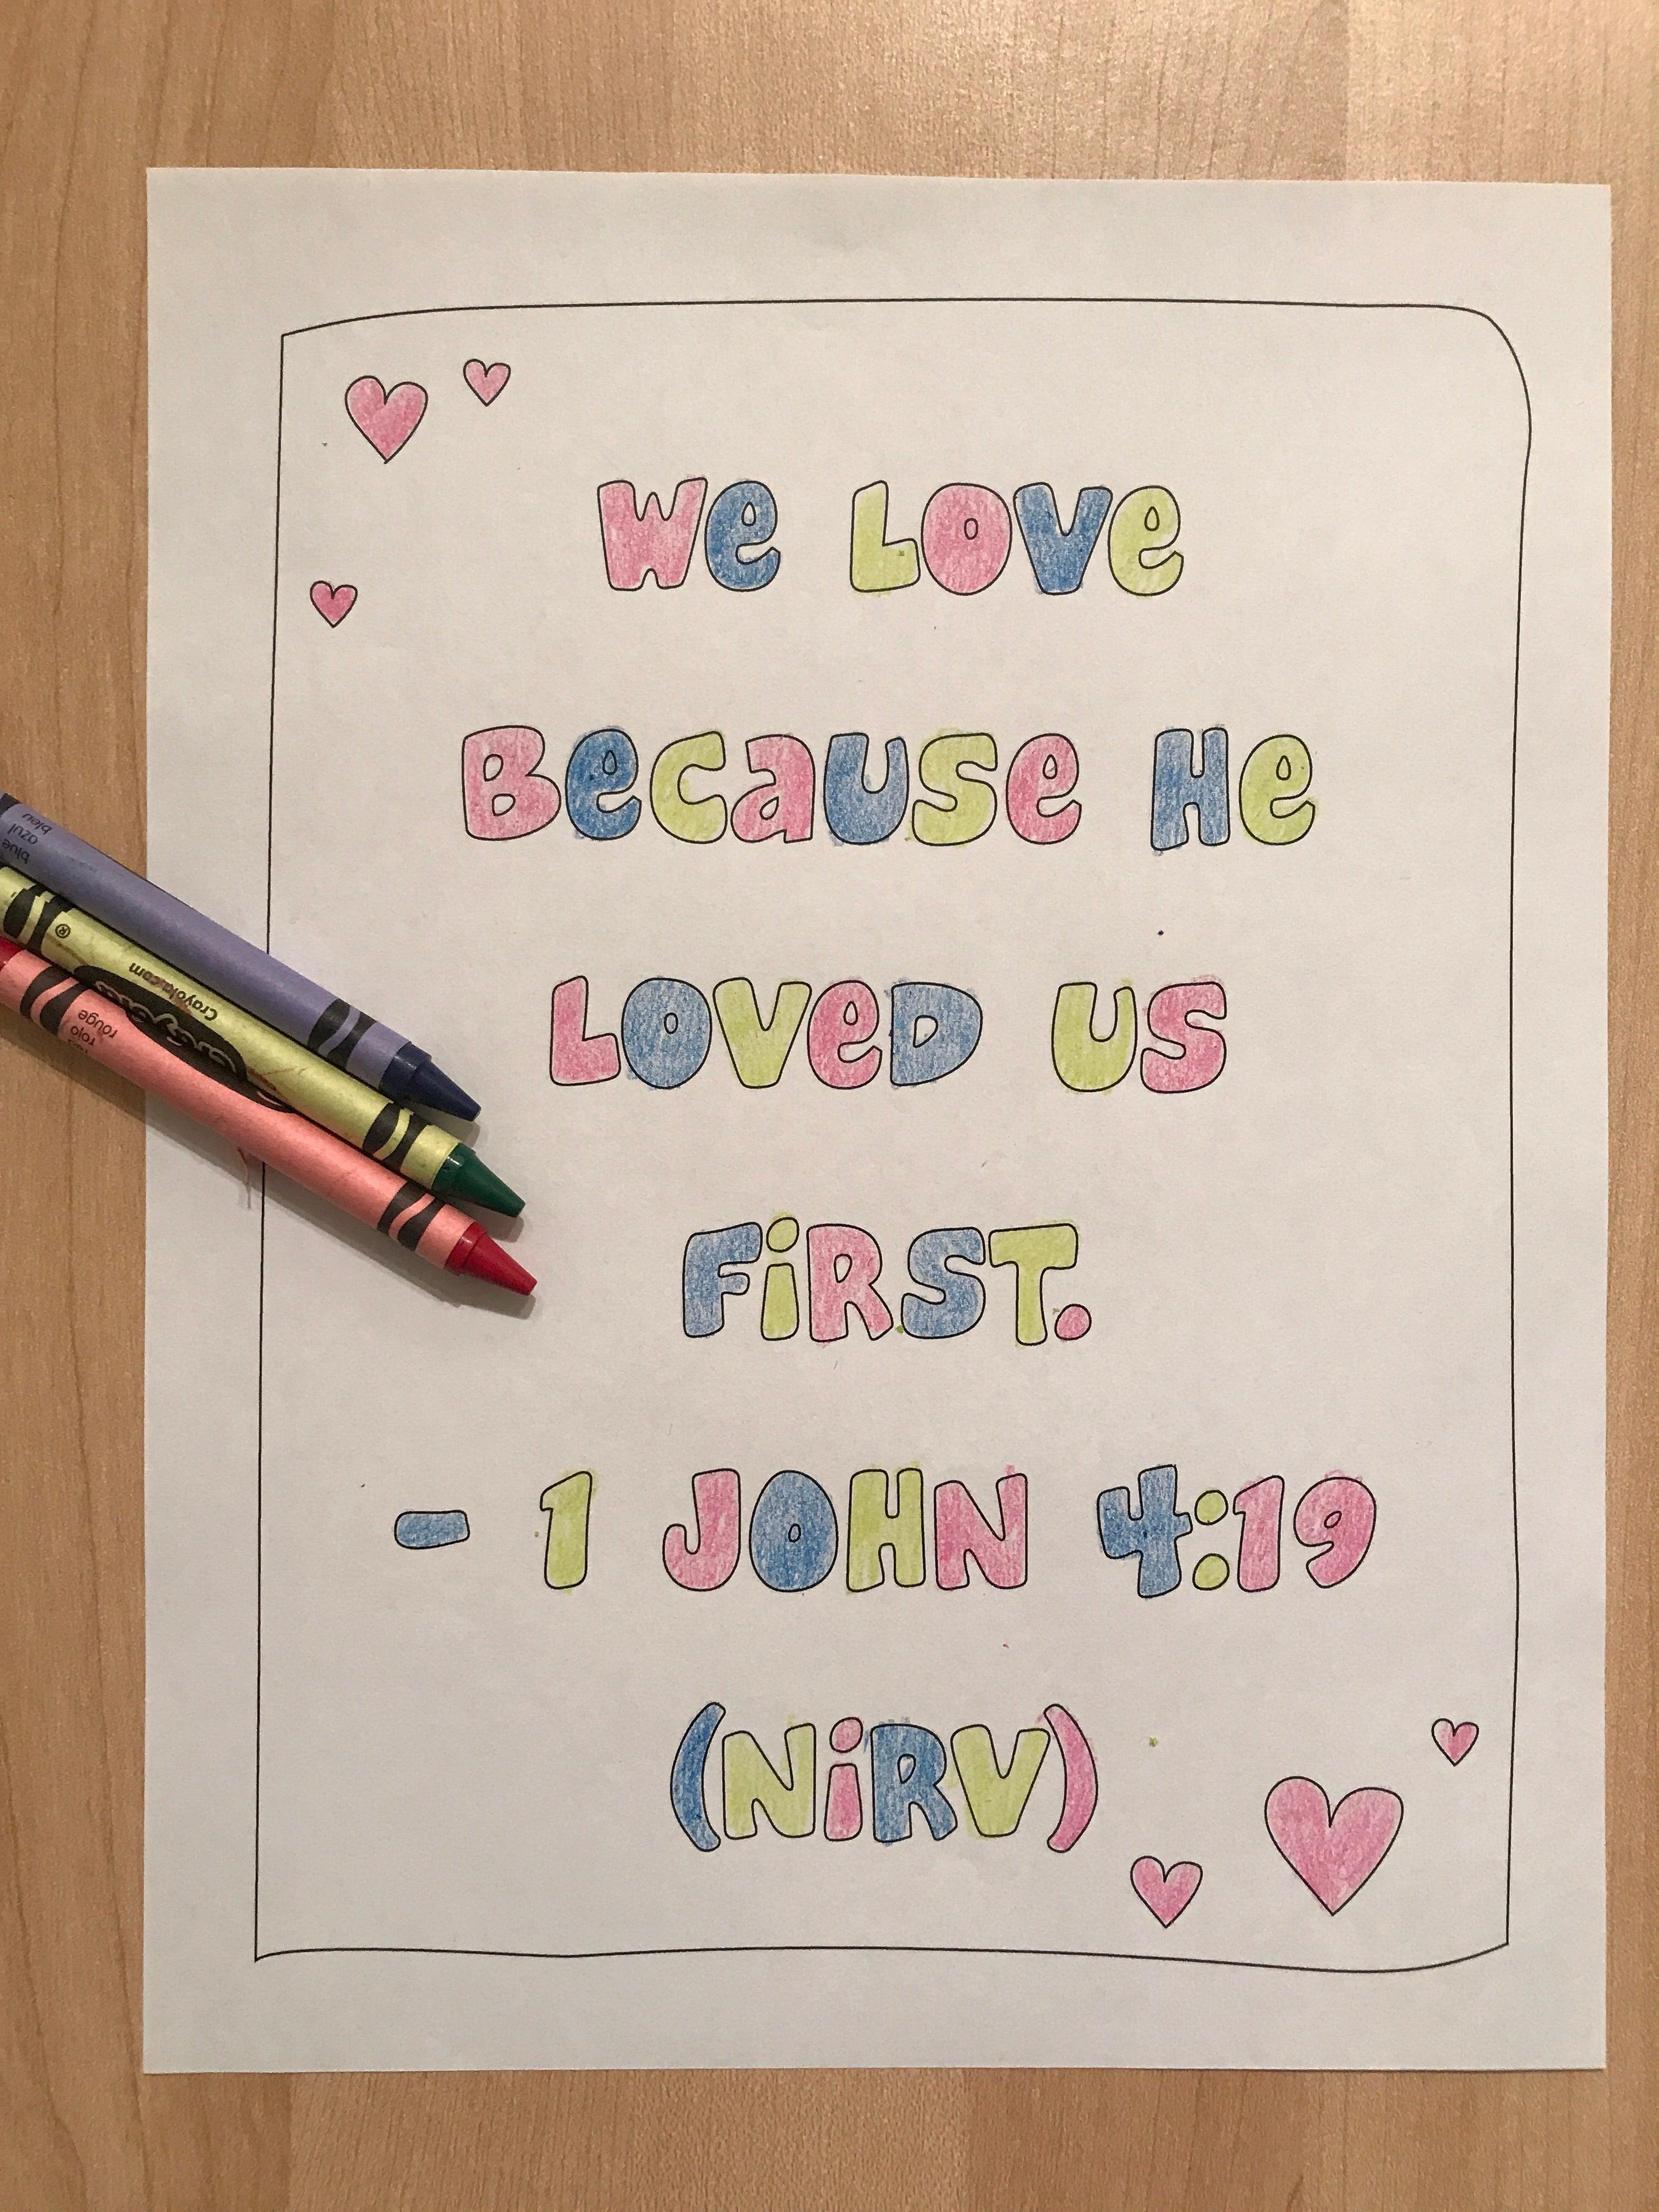 We Love
Because He
Loved us
First.
- 1 John 4:19
(NiRV)
blue
azul
bleu
®
Crayola.com
Crayola
rojo
rouge